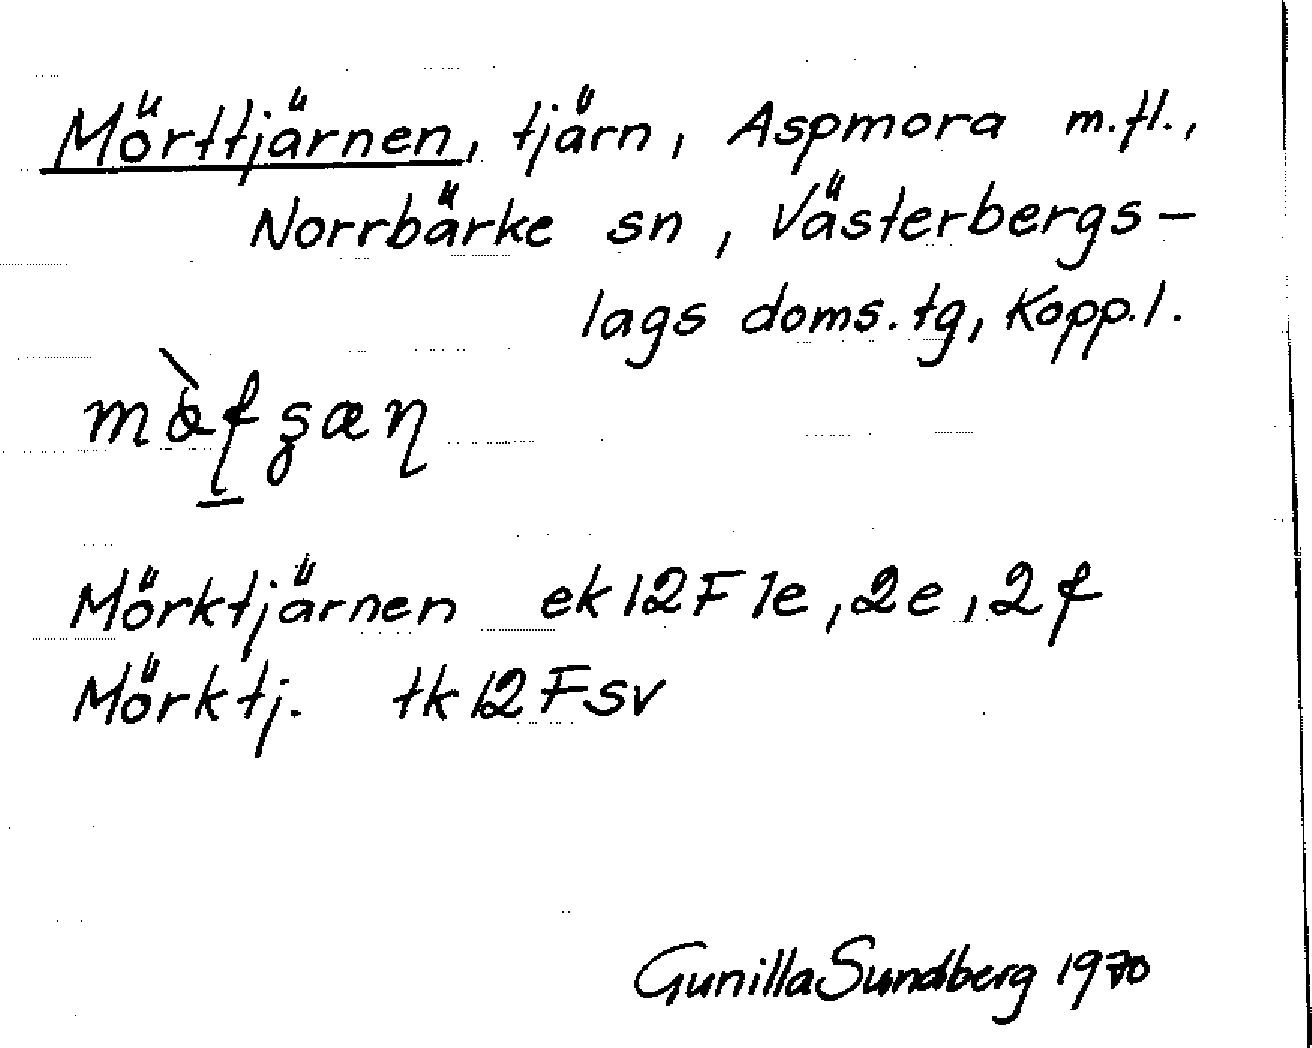 Mörttjärnen, tjärn, Aspmora m.fl.,
Norrbärke sn, Västerbergs-
lags doms.tg, Kopp.l.
Mörktjärnen ek12F1e,2e,2f
Mörktj. tk12Fsv
Gunilla Sundberg 1970